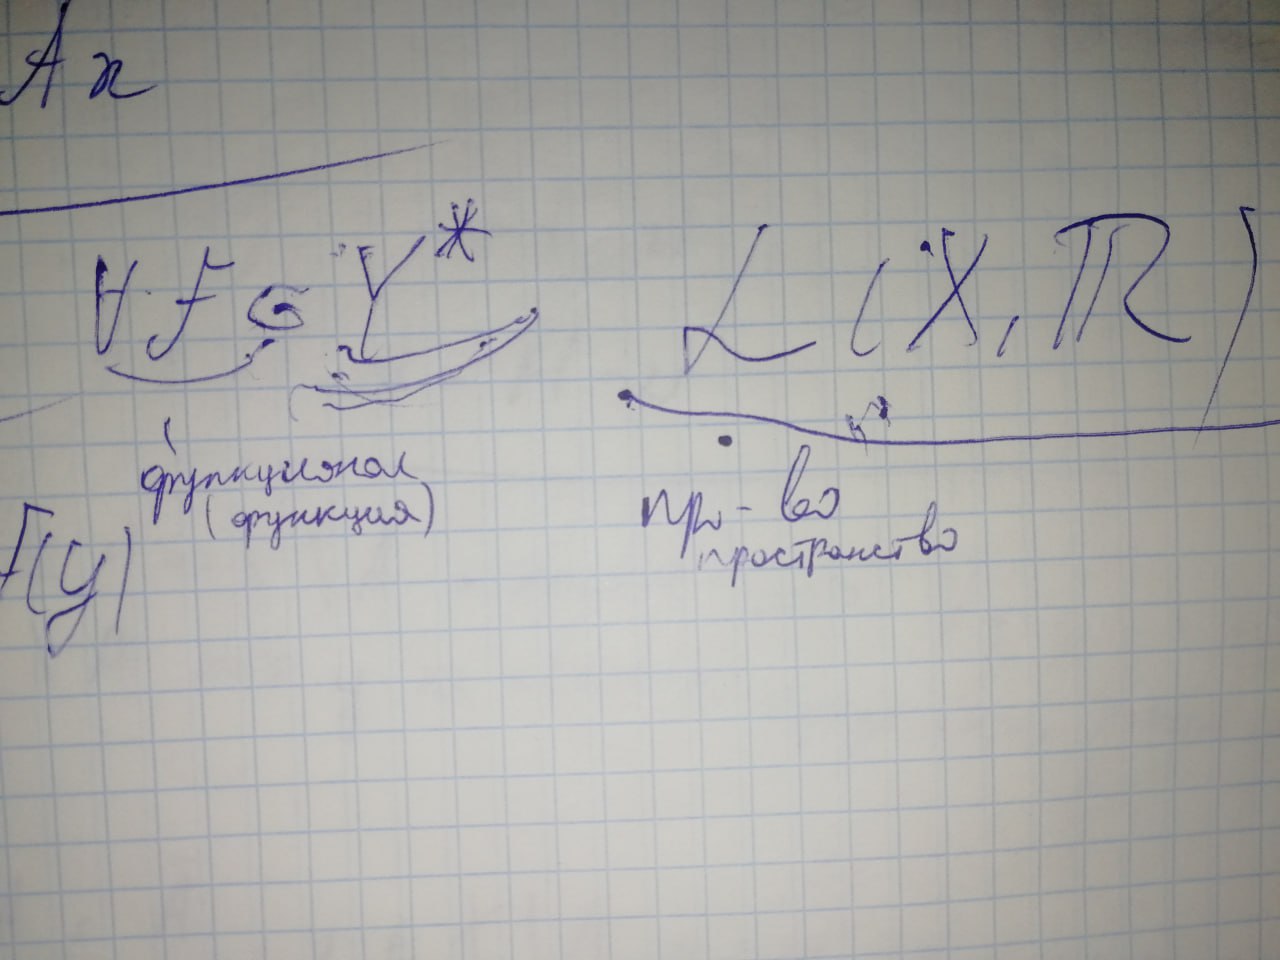 Ax
∀ F ∈ Y* L(X, ℝ)
функционал
(функция)
пр-во
пространство
F(y)